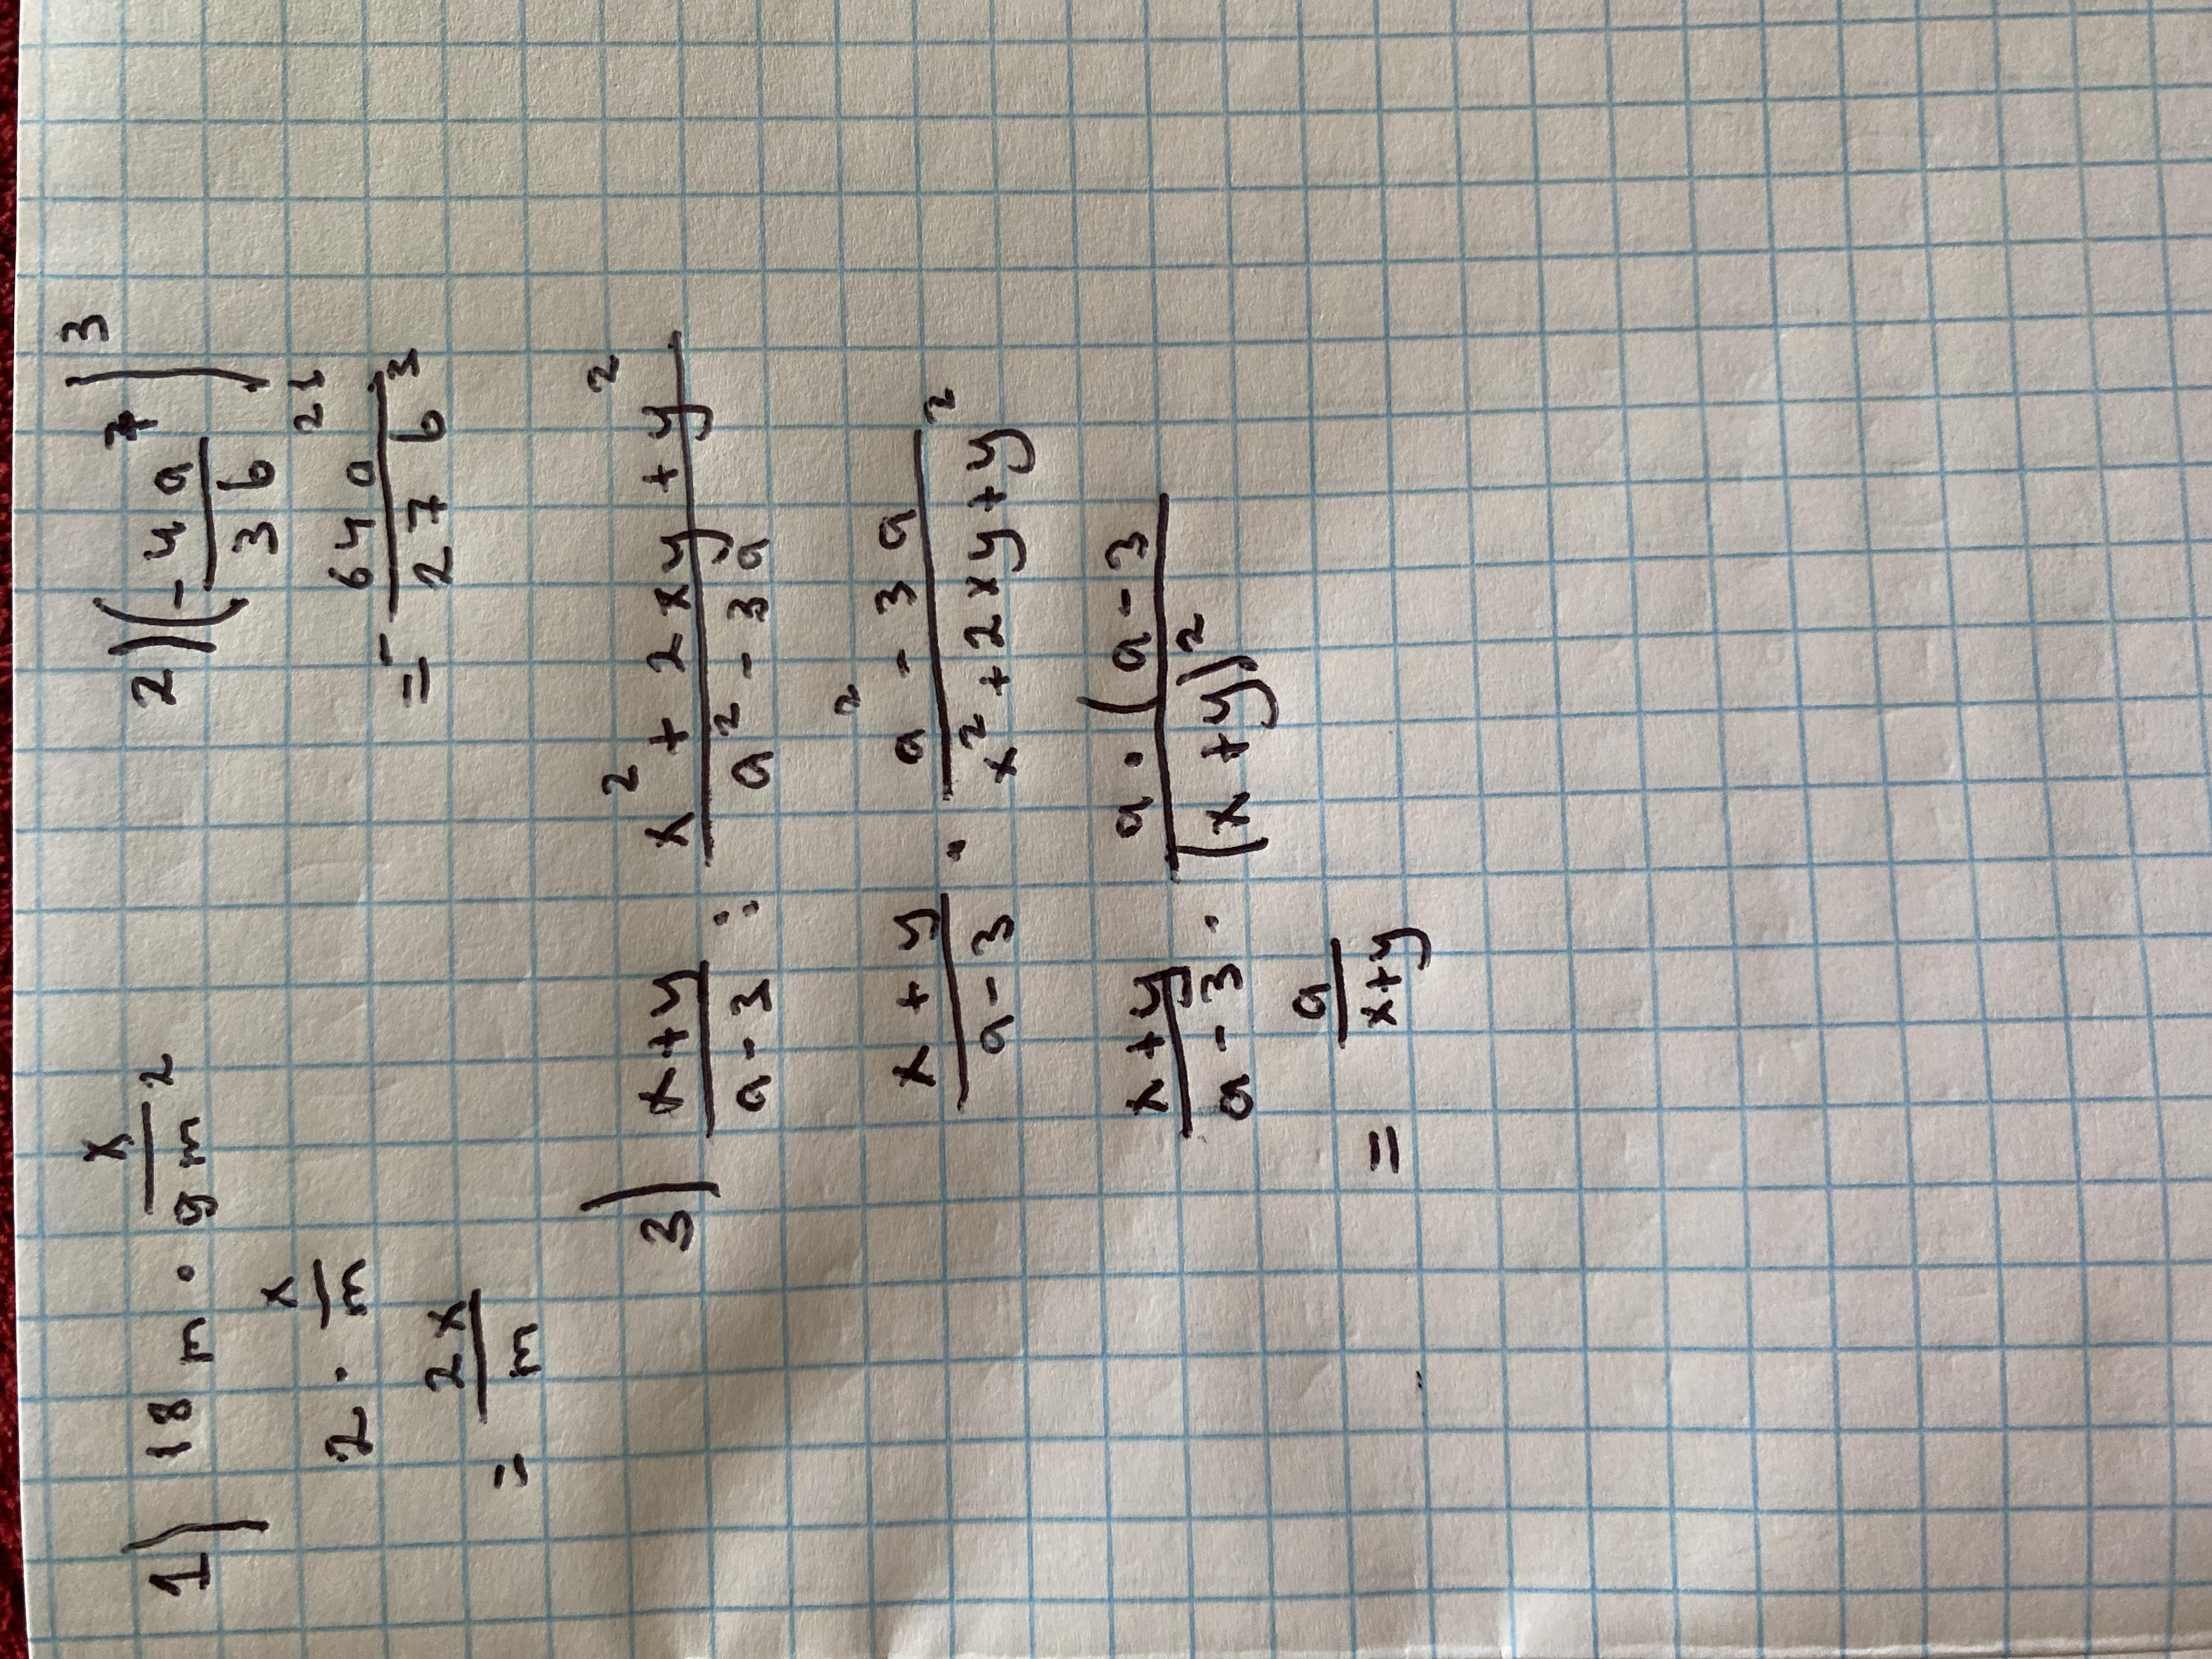 1) 18 m · x/9m²
2 · x/m
= 2x/m
2) (-4a⁷/3b)³
= -64a²¹/27b³
3) x+y/a-3 : x²+2xy+y²/a²-3a
x+y/a-3 · a²-3a/x²+2xy+y²
x+y/a-3 · a·(a-3/(x+y)²
= a/x+y